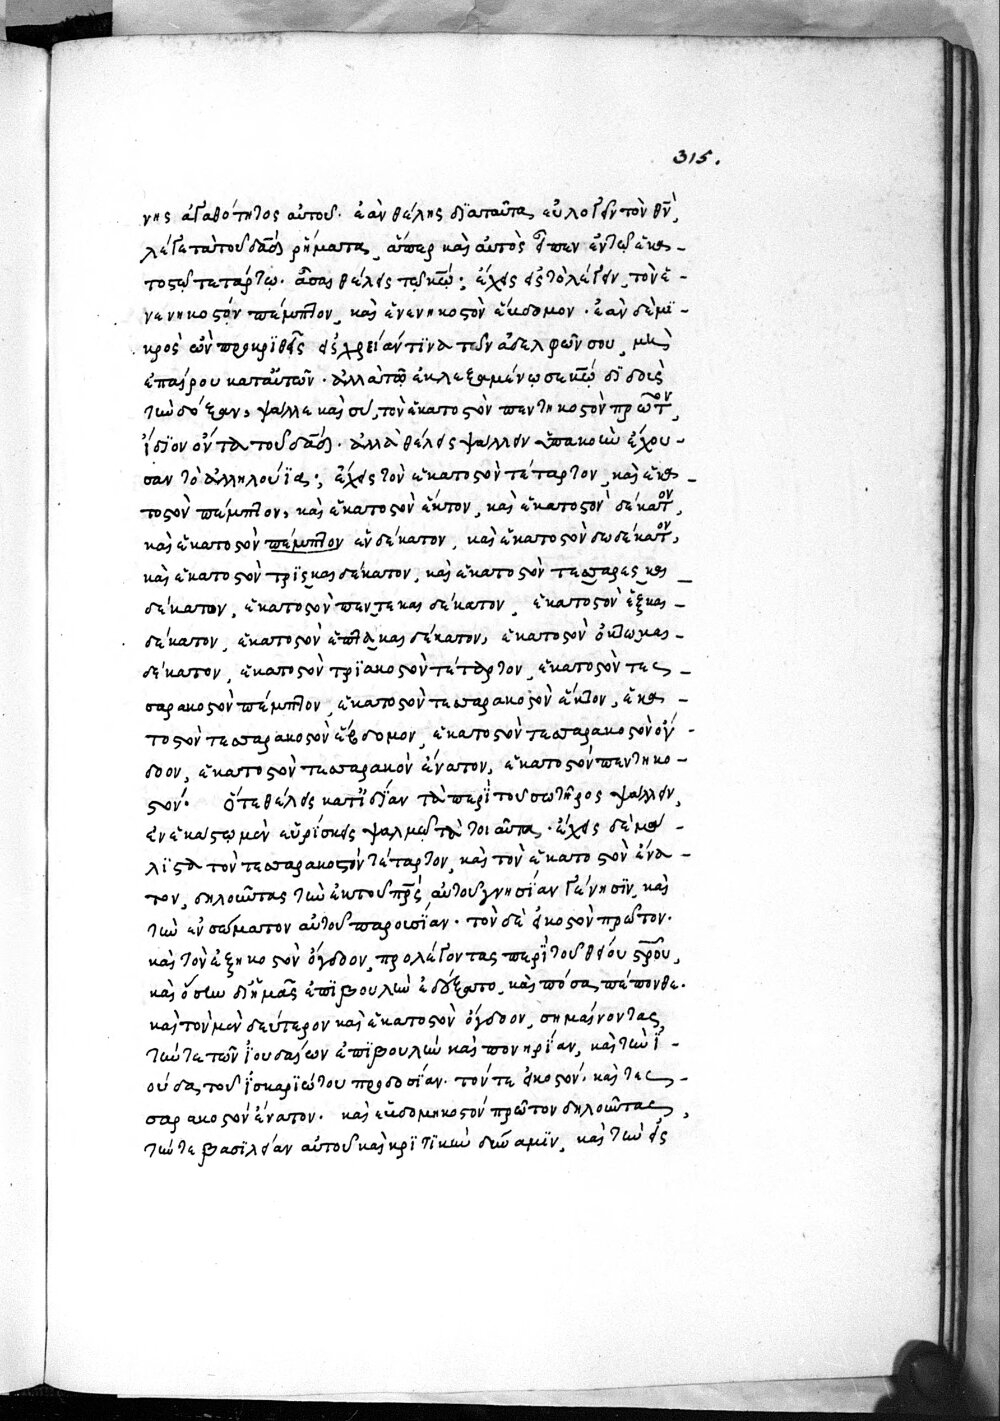 315.
νης ἀγαθότητος αὐτοῦ. ἐὰν θέλης διαταῦτα εὐλογεῖν τὸν θν̅,
λέγε τὰ τοῦ δαδ̅ ῥήματα, ἅπερ καὶ αὐτὸς εἶπεν ἐν τῷ ἑκα -
τοςῷ τετάρτῳ. ᾆσαι θέλεις τῷ κω̅; ἔχεις εἰς τὸ λέγειν, τὸν ἐ -
νενηκοςὸν πέμπτον, καὶ ἐνενηκοςὸν ἕβδομον. ἐὰν δὲ μι -
κρὸς ὢν προκριθῆς εἰς χρείαν τινὰ τῶν ἀδελφῶν σου, μὴ
ἐπαίρου κατ' αὐτῶν. ἀλλὰ τῷ ἐκλεξαμένῳ σε κω̅ διδοὺς
τὴν δόξαν, ψάλλε καὶ σὺ, τὸν ἑκατοςὸν πεντηκοςὸν πρῶτον,
ἴδιον ὄντα τοῦ δαδ̅. ἀλλὰ θέλεις ψάλλειν ὑπακοὴν ἔχου -
σαν τὸ ἀλληλούϊα; ἔχεις τὸν ἑκατοςὸν τέταρτον, καὶ ἑκα -
τοςὸν πέμπτον, καὶ ἑκατοςὸν ἕκτον, καὶ ἑκατοςὸν δέκατον,
καὶ ἑκατοςὸν πέμπτον ἑνδέκατον, καὶ ἑκατοςὸν δωδέκατον,
καὶ ἑκατοςὸν τριςκαιδέκατον, καὶ ἑκατοςὸν τεσσαρες και
δέκατον, ἑκατοςὸν πεντεκαιδέκατον, ἑκατοςὸν ἑξκαι -
δέκατον, ἑκατοςὸν ἑπτακαιδέκατον, ἑκατοςὸν ὀκτωκαι -
δέκατον, ἑκατοςὸν τριακοςὸν τέταρτον, ἑκατοςὸν τες -
σαρακοςὸν πέμπτον, ἑκατοςὸν τεσσαρακοςὸν ἕκτον, ἑκα -
τοςὸν τεσσαρακοςὸν ἕβδομον, ἑκατοςὸν τεσσαρακοςὸν ὄγ -
δοον, ἑκατοςὸν τεσσαρακὸν ἔνατον, ἑκατοςὸν πεντηκο -
ςόν. Ὅτε θέλεις κατιδίαν τὰ περὶ τοῦ σωτῆρος ψάλλειν,
ἐν ἑκάςῳ μὲν εὑρίσκεις ψαλμῷ τὰ τοιαῦτα. ἔχεις δὲ μά -
λιςα τὸν τεσσαρακοςὸν τέταρτον, καὶ τὸν ἑκατοςὸν ἔνα -
τον, δηλοῦντας τὴν ἐκ τοῦ πρς̅ αὐτοῦ γνησίαν γέννησιν, καὶ
τὴν ἐνσώματον αὐτοῦ παρουσίαν. τὸν δὲ εἰκοςὸν πρῶτον.
καὶ τὸν ἑξηκοςὸν ὄγδοον, προλέγοντας περὶ τοῦ θείου ςρ̅οῦ,
καὶ ὅσην δι' ἡμᾶς ἐπιβουλὴν ἐδέξατο, καὶ πόσα πέπονθε.
καὶ τὸν μὲν δεύτερον καὶ ἑκατοςὸν ὄγδοον, σημαίνοντας
τήν τε τῶν Ἰουδαίων ἐπιβουλὴν καὶ πονηρίαν, καὶ τὴν Ἰ -
ούδα τοῦ Ἰσκαριώτου προδοσίαν. τόν τε εἰκοςόν. καὶ τες -
σαρακοςὸν ἔνατον. καὶ ἑβδομηκοςὸν πρῶτον δηλοῦντας,
τήν τε βασιλείαν αὐτοῦ καὶ κριτικὴν δύναμιν, καὶ τὴν εἰς